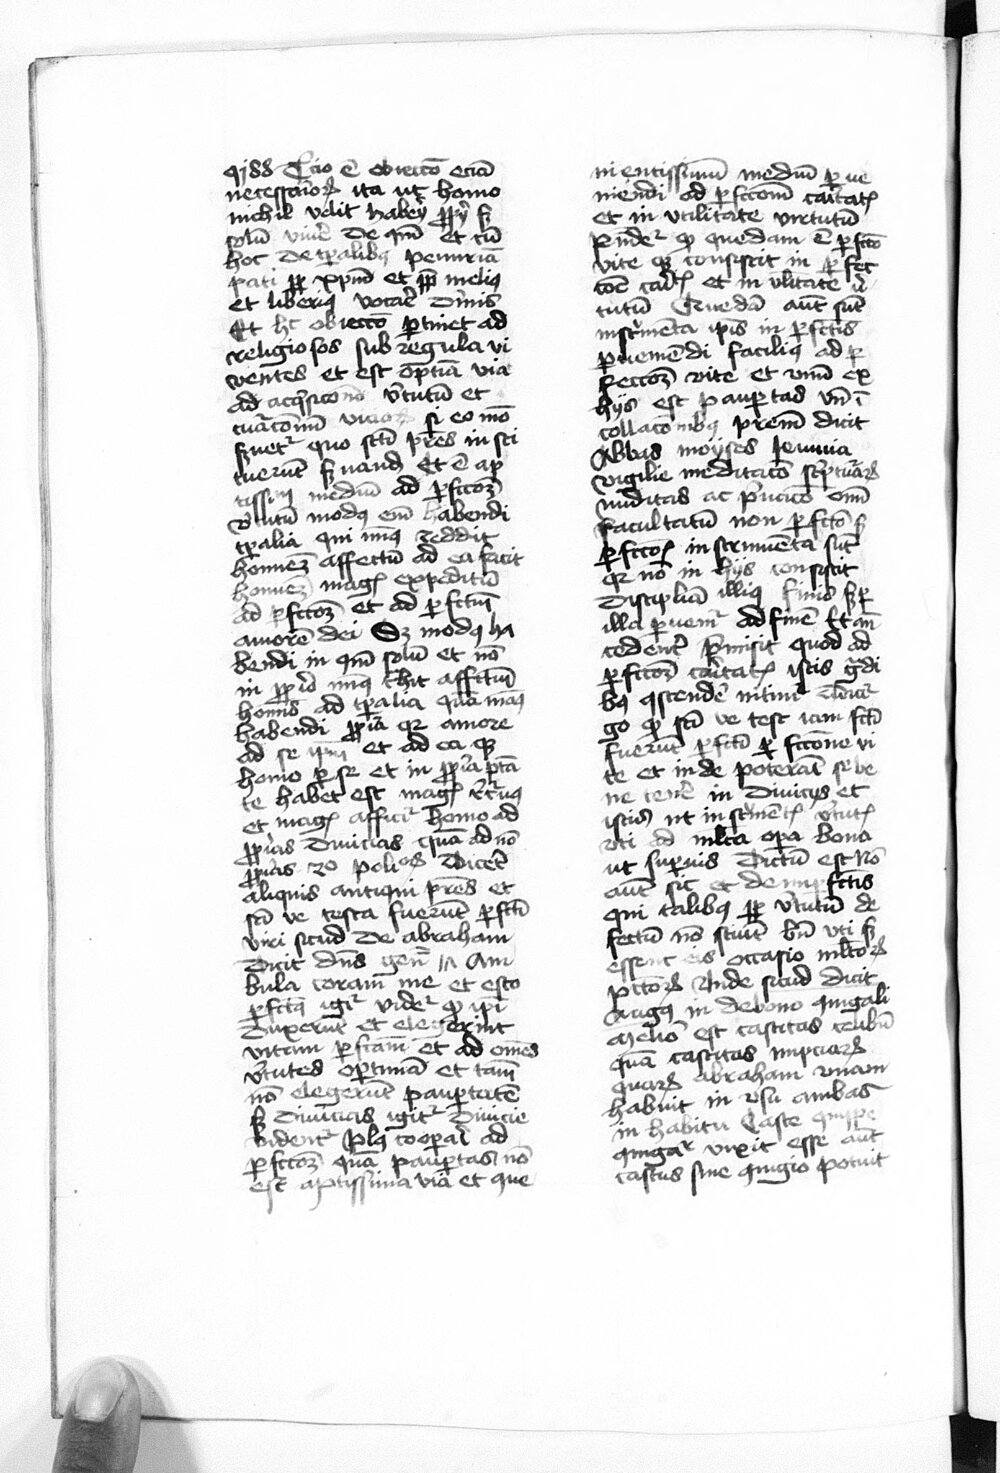 Tercio est abiectio etiam
necessariorum ita ut homo
nichil velit habere proprii sed
solum vivere de communi et cum
hoc de temporalibus penuriam
pati propter christum et propter melius
et liberius vocare divinis
Et hec abiectio pertinet ad
religiosos sub regula vi
ventes et est optima via
ad acquisicionem virtutum et
si eo modo
servetur quo sancti patres insti
tuerunt servandam Et est ap
tissimum medium ad perfectionem
virtutum modus enim habendi
temporalia qui minus reddit
hominem affectum ad ea facit
hominem magis expeditum
ad perfectionem et ad perfectum
amorem dei Sed modus ha
bendi in communi solum et non
in proprio minus trahit affectum
hominis ad temporalia quam modus
habendi propria quia amore
ad se ipsum et ad ea que
homo per se et in propria potesta
te habet est magis
et magis afficitur homo ad
proprias divicias quam ad non
proprias 2o pol Diceret
aliquis antiqui patres et
sancti ve testa fuerunt perfecti
viri sicud de abraham
dicit dominus gen 17 Am
bula coram me et esto
perfectus igitur videtur quod ipsi
duxerunt et elegerint
vitam perfectam et ad omnes
virtutes optimam et tamen
non elegerunt paupertatem
sed divicias igitur divicie
videntur plus cooperari ad
perfectionem quam paupertas non
est aptissima via et que
nientissimum medium perve
niendi ad perfectionem caritatis
et in utilitate virtutum
Respondetur quod quedam est perfectio
vite que consistit in perfec
tione caritatis et in utilitate vir
tutum Quedam autem sunt
instrumenta ipsis imperfectis
perveniendi facilius ad per
fectionem vite et unum ex
hiis est paupertas unde in
collacionibus patrum dicit
Abbas moyses Ieiunia
vigilie meditacio scripturarum
nuditas ac privacio omnium
facultatum non perfectio sed
perfectionis instrumenta sunt
quia non in hiis consistit
disciplina illius finis sed per
illa pervenitur ad finem Et an
tecedenter premisit quod ad
perfectionem caritatis istis gradi
bus ascendere nitimur Dicitur er
go quod sancti ve test iam facti
fuerunt perfecti perfectione vi
te et inde poterant se be
ne tenere in diviciis et
istis ut instrumentis virtutis
uti ad multa opera bona
ut superius dictum est Non
autem sic est de imperfectis
qui talibus propter virtutum de
fectum non sciunt bene uti sed
essent eis occasio multorum
peccatorum Unde sicud dicit
Augustinus in de bono coniugali
melior est castitas celibum
quam castitas nupciarum
quarum abraham unam
habuit in usu ambas
in habitu Caste quippe
coniugaliter vixit esse autem
castus sine coniugio potuit